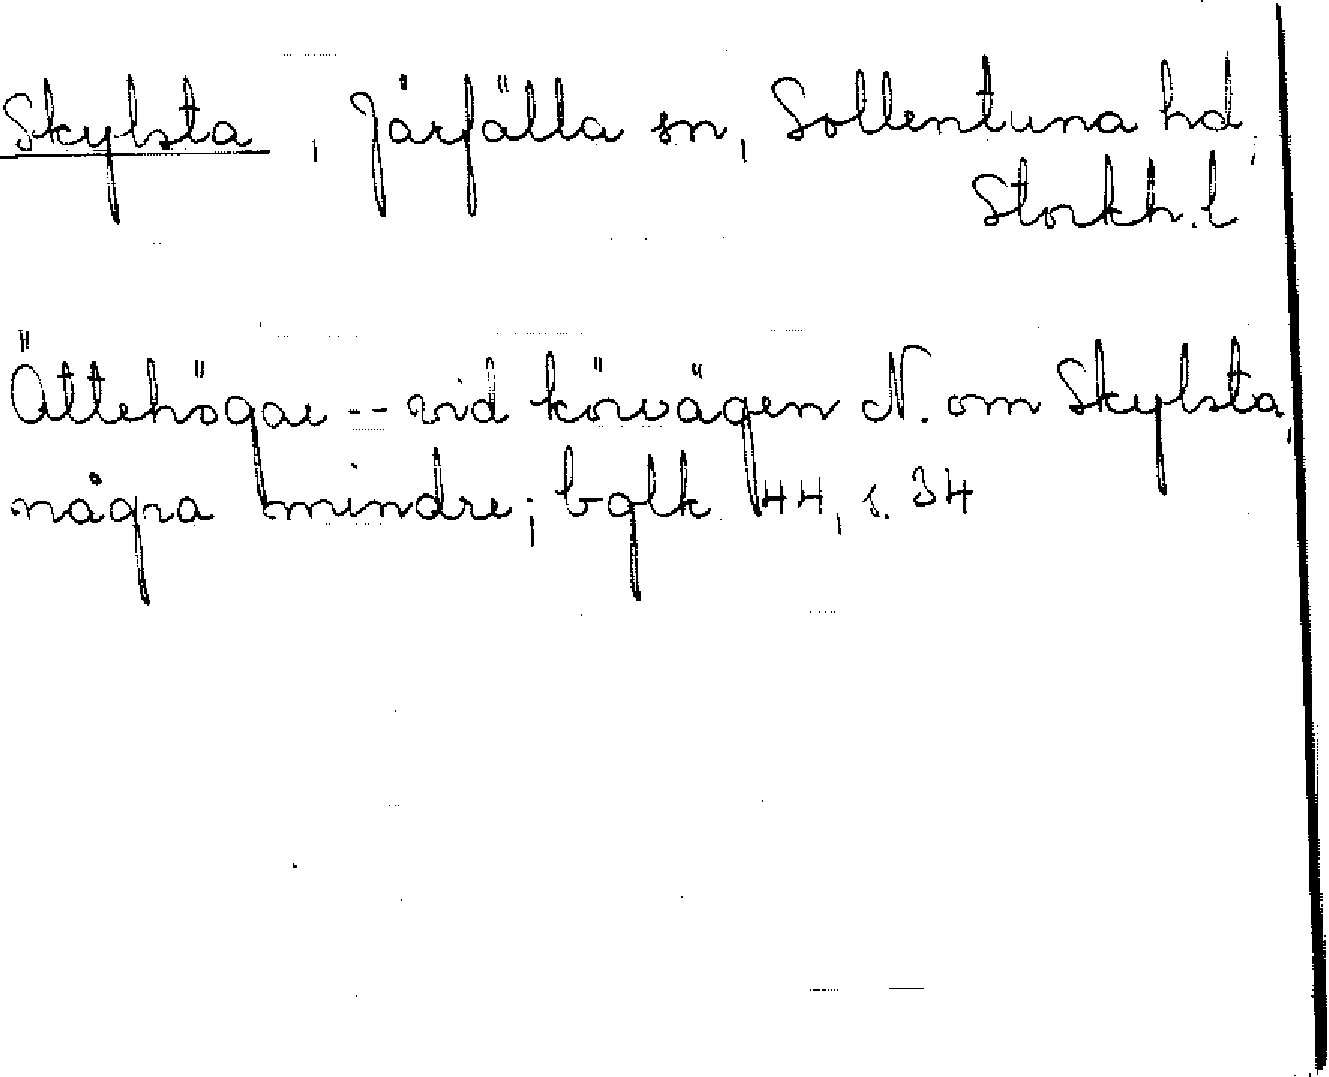 Skylsta, Järfälla sn, Sollentuna hd,
Stockh. l
Ättehögar -- vid körvägen N. om Skylsta,
några mindre; bglk 44, s. 34